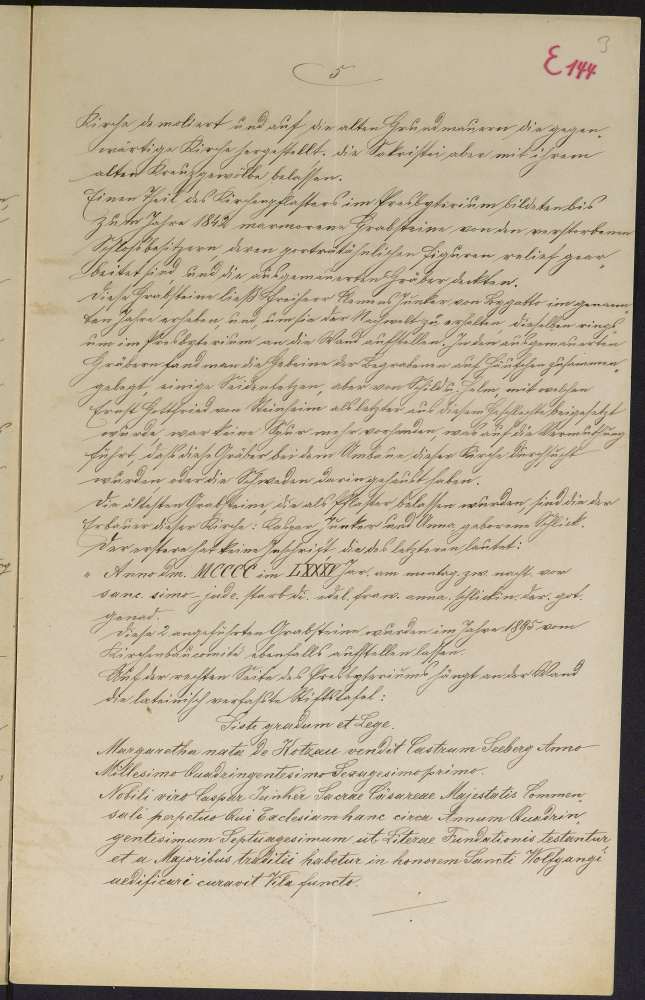 3
E 144
5
Kirche demoliert und auf die alten Grundmauern die gegen„
wärtige Kirche hergestellt. die Sakristei aber mit ihrem
alten Kreuzgewölbe belassen.
Einen Theil des Kirchenpflasters im Presbyterium bildeten bis
zum Jahre 1842 marmorene Grabsteine von den verstorbenen
Schloßbesitzern deren porträtähnlichen Figuren relief gear„
beitet sind und die ausgemauerten Gräber deckten.
Diese Grabsteine ließ Freiherr Klemens Junker von Bigatto im genann„
ten Jahre erheben, und, um sie der Nachwelt zu erhalten dieselben rings„
um im Presbyterium an die Wand aufstellen. In den ausgemauerten
Gräbern fand man die Gebeine der Begrabenen auf Häufchen zusammen„
gelegt, einige Seidenfetzen, aber von Schild u. Helm, mit welchen
Ernst Gottfried von Steinheim als letzter aus diesem Geschlechte beigesetzt
wurde, war keine Spur mehr vorhanden, was auf die Vermuthung
führt, daß diese Gräber bei dem Umbaue dieser Kirche durchsucht
wurden oder die Schweden darin gehaust haben.
Die ältesten Grabsteine die als Pflaster belassen wurden, sind die der
Erbauer dieser Kirche: Kaspar Junker und Anna geborene Schlick.
Der erstere hat keine Inschrift die des letzteren lautet:
„ Anno dm. MCCCC im LXXXV Jar. am montag. zw. nacht. vor
sanc. simo - jude. starb di. edel. fraw. anna. schlickin. der. got.
genad.
Diese 2 angeführten Grabsteine wurden im Jahre 1895 vom
Kirchenbaucomité ebenfalls aufstellen lassen.
Auf der rechten Seite des Presbyteriums hängt an der Wand
die lateinisch verfaßte Stiftstafel:
Siste gradum et Lege.
Margaretha nata de Kotzau vendit Castrum Seeberg Anno
Millesimo Quadringentesimo Sexagesimo primo.
Nobili viro Caspar Juncker Sacrae Cäsareae Majestatis Commen„
sali perpetuo Qui Ecclesiam hanc circa Annum Quadrin„
gentesimum Septuagesimum ut Literae Fundationis testantur
et a Majoribus traditii habetur in honorem Sancti Wolfgangi
aedificari curavit Vita functo.